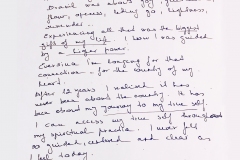 Brazil was about joy,
flow, openess, letting go, lightness,
surrender..
Experiencing all that was the biggest
gift of my life. I know I was guided
by a higher power.
Ever since I'm longing for that
connection - for the country of my
heart.
After 12 years I noticed it has
never been about the country. It has
been about my journey to my true self.
I can access my true self throughout
my spiritual practice. I never felt
so guided, centered and clear as
I feel today.